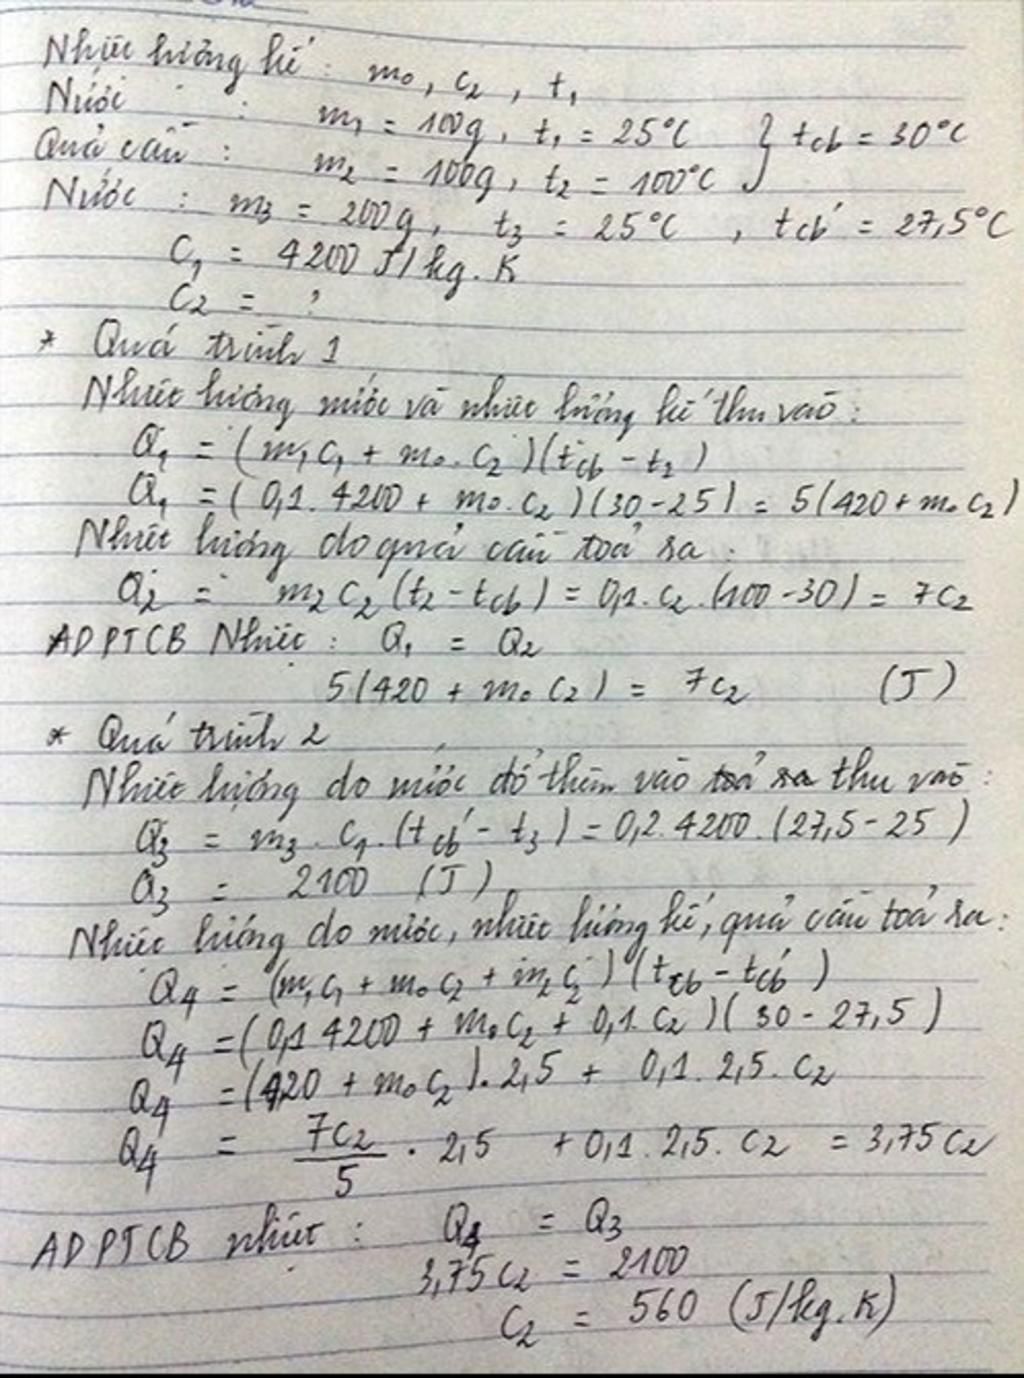 Nhiệt lượng kế : m₀, c₂, t₁
Nước : m₁ = 100g, t₁ = 25°C } tcb = 30°C
Quả cầu : m₂ = 100g, t₂ = 100°C
Nước : m₃ = 200g, t₃ = 25°C , tcb' = 27,5°C
C₁ = 4200 J/kg.K
C₂ = ?
* Quá trình 1
Nhiệt lượng nước và nhiệt lượng kế thu vào :
Q₁ = (m₁c₁ + m₀.c₂)(tcb - t₂)
Q₁ = (0,1.4200 + m₀.c₂)(30-25) = 5(420+m₀c₂)
Nhiệt lượng do quả cầu toả ra :
Q₂ = m₂c₂(t₂-tcb) = 0,1.c₂.(100-30) = 7c₂
ADPTCB Nhiệt : Q₁ = Q₂
5(420 + m₀c₂) = 7c₂ (J)
* Quá trình 2
Nhiệt lượng do nước đổ thêm vào toả ra thu vào :
Q₃ = m₃.c₁.(tcb'-t₃) = 0,2.4200.(27,5-25)
Q₃ = 2100 (J)
Nhiệt lượng do nước, nhiệt lượng kế, quả cầu toả ra :
Q₄ = (m₁c₁ + m₀c₂ + m₂c₂)(tcb - tcb')
Q₄ = (0,1 4200 + m₀c₂ + 0,1.c₂)(30 - 27,5)
Q₄ = (420 + m₀c₂).2,5 + 0,1.2,5.c₂
Q₄ = 7c₂/5 . 2,5 + 0,1.2,5.c₂ = 3,75c₂
ADPTCB nhiệt : Q₄ = Q₃
3,75c₂ = 2100
C₂ = 560 (J/kg.K)